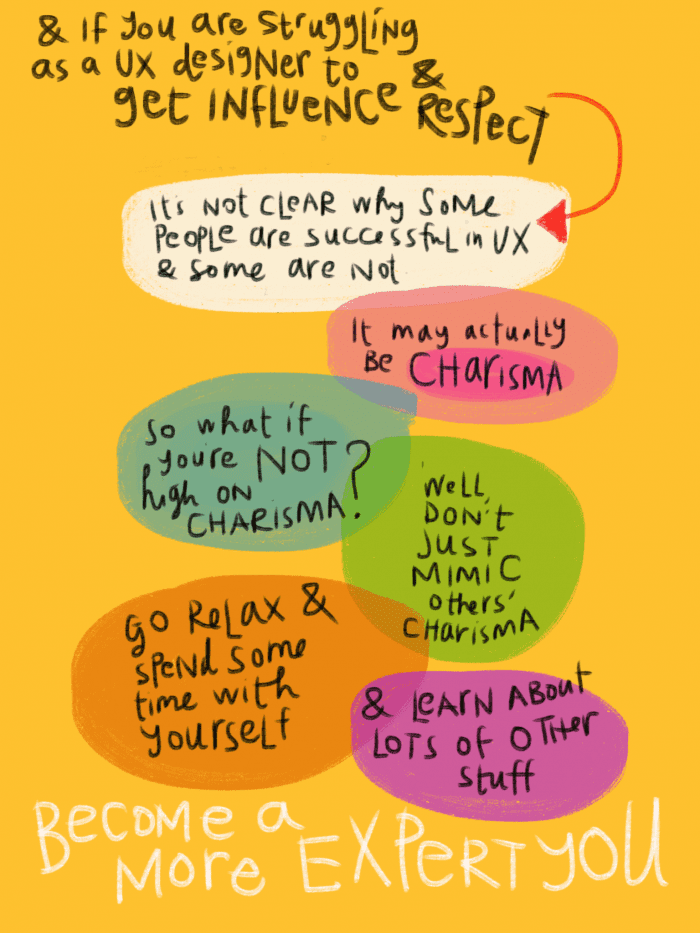 & if you are struggling
as a UX designer to
get INFLUENCE & RESPECT
It's NOT CLEAR why SOME
PEOPLE are successful in UX
& some are Not
It may actually
BE CHARISMA
so what if
you're NOT
high ON
CHARISMA?
WELL,
DON't
JUST
MIMIC
others'
CHARISMA
GO RELAX &
SPEND some
time with
yourself
& LEARN ABOUT
LOTS of OTHER
stuff
BECOME a
MORE EXPERT YOU